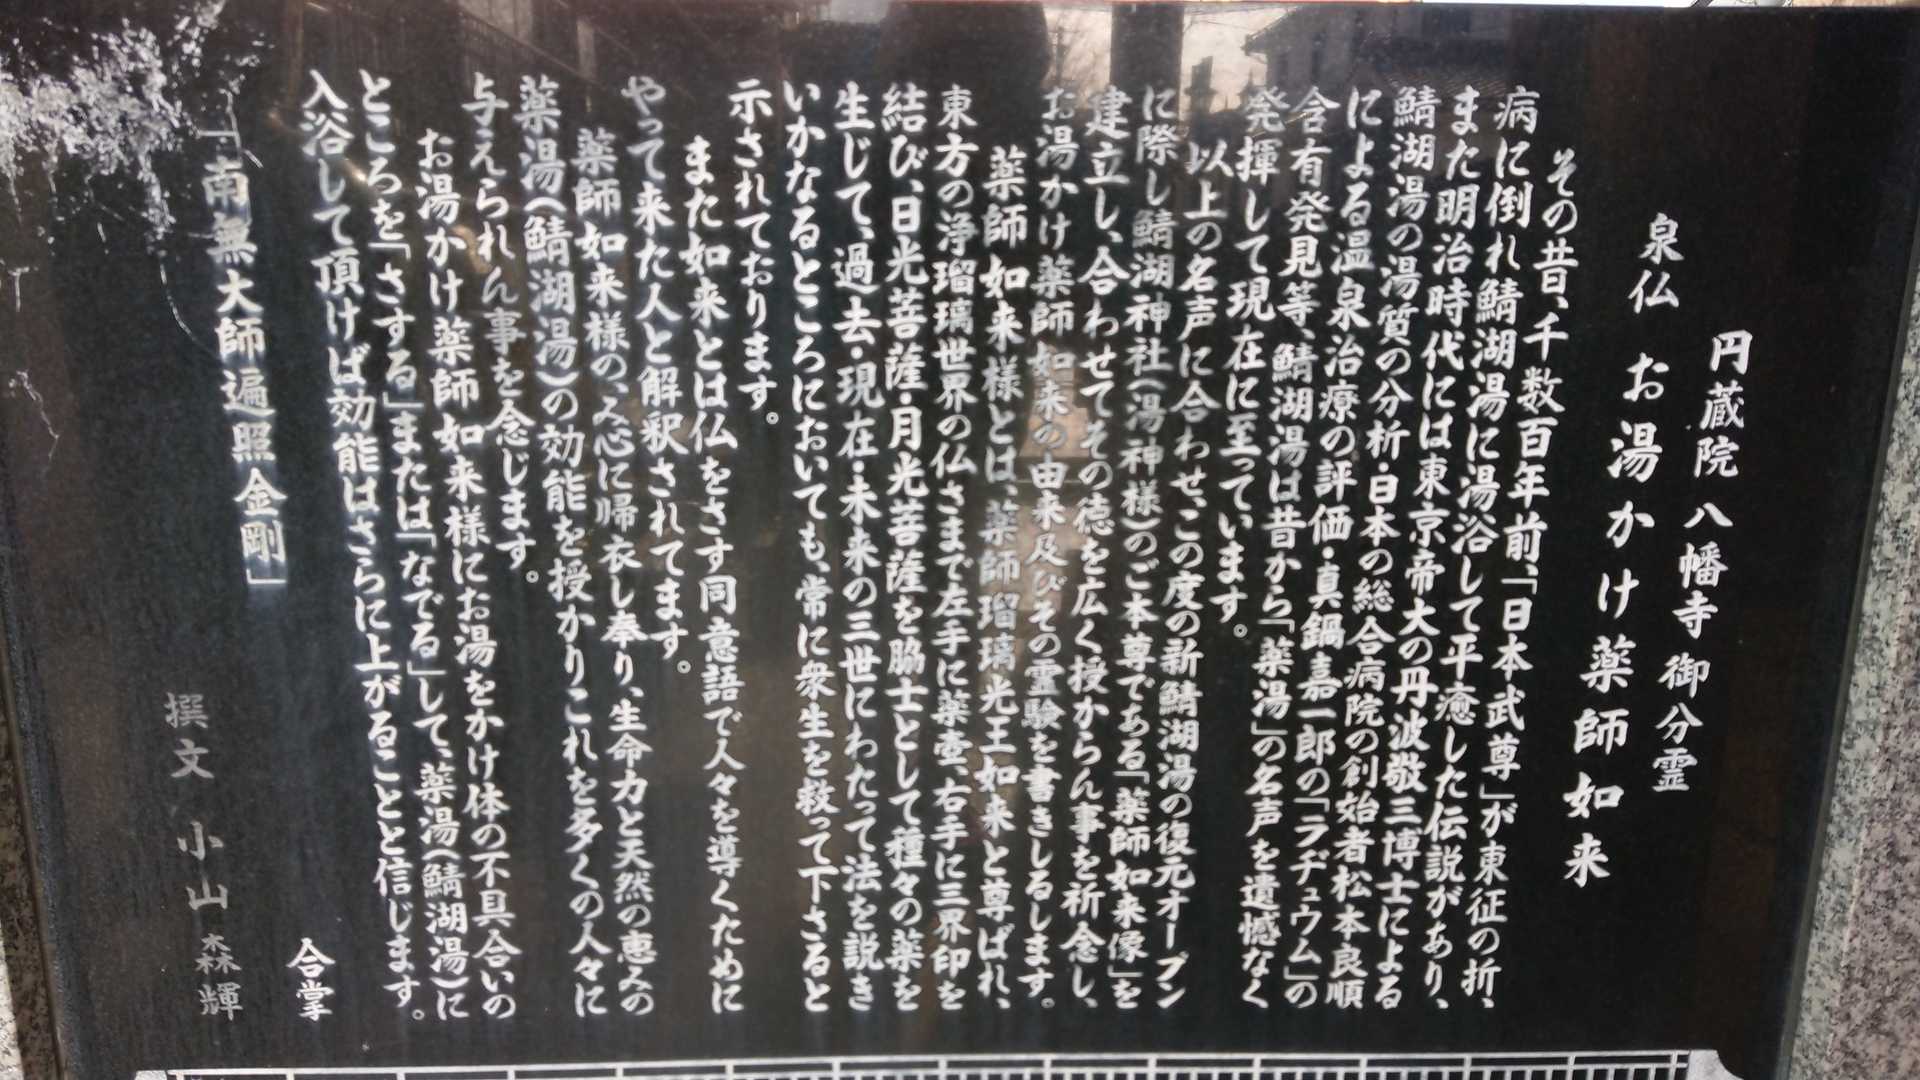 円蔵院 八幡寺 御分霊
泉仏 お湯かけ薬師如来
その昔、千数百年前、「日本武尊」が東征の折、
病に倒れ鯖湖湯に湯浴して平癒した伝説があり、
また明治時代には東京帝大の丹波敬三博士による
鯖湖湯の湯質の分析・日本の総合病院の創始者松本良順
による温泉治療の評価・真鍋嘉一郎の「ラヂュウム」の
含有発見等、鯖湖湯は昔から「薬湯」の名声を遺憾なく
発揮して現在に至っています。
以上の名声に合わせ、この度の新鯖湖湯の復元オープン
に際し鯖湖神社(湯神様)のご本尊である「薬師如来像」を
建立し、合わせてその徳を広く授からん事を祈念し、
お湯かけ薬師如来の由来及びその霊験を書きしるします。
薬師如来様とは、薬師瑠璃光王如来と尊ばれ、
東方の浄瑠璃世界の仏さまで左手に薬壺、右手に三界印を
結び、日光菩薩・月光菩薩を脇士として種々の薬を
生じて、過去・現在・未来の三世にわたって法を説き
いかなるところにおいても、常に衆生を救って下さると
示されております。
また如来とは仏をさす同意語で人々を導くために
やって来た人と解釈されてます。
薬師如来様の、み心に帰衣し奉り、生命力と天然の恵みの
薬湯(鯖湖湯)の効能を授かりこれを多くの人々に
与えられん事を念じます。
お湯かけ薬師如来様にお湯をかけ体の不具合いの
ところを「さする」または「なでる」して、薬湯(鯖湖湯)に
入浴して頂けば効能はさらに上がることと信じます。
合掌
「南無大師遍照金剛」
撰文 小山森輝